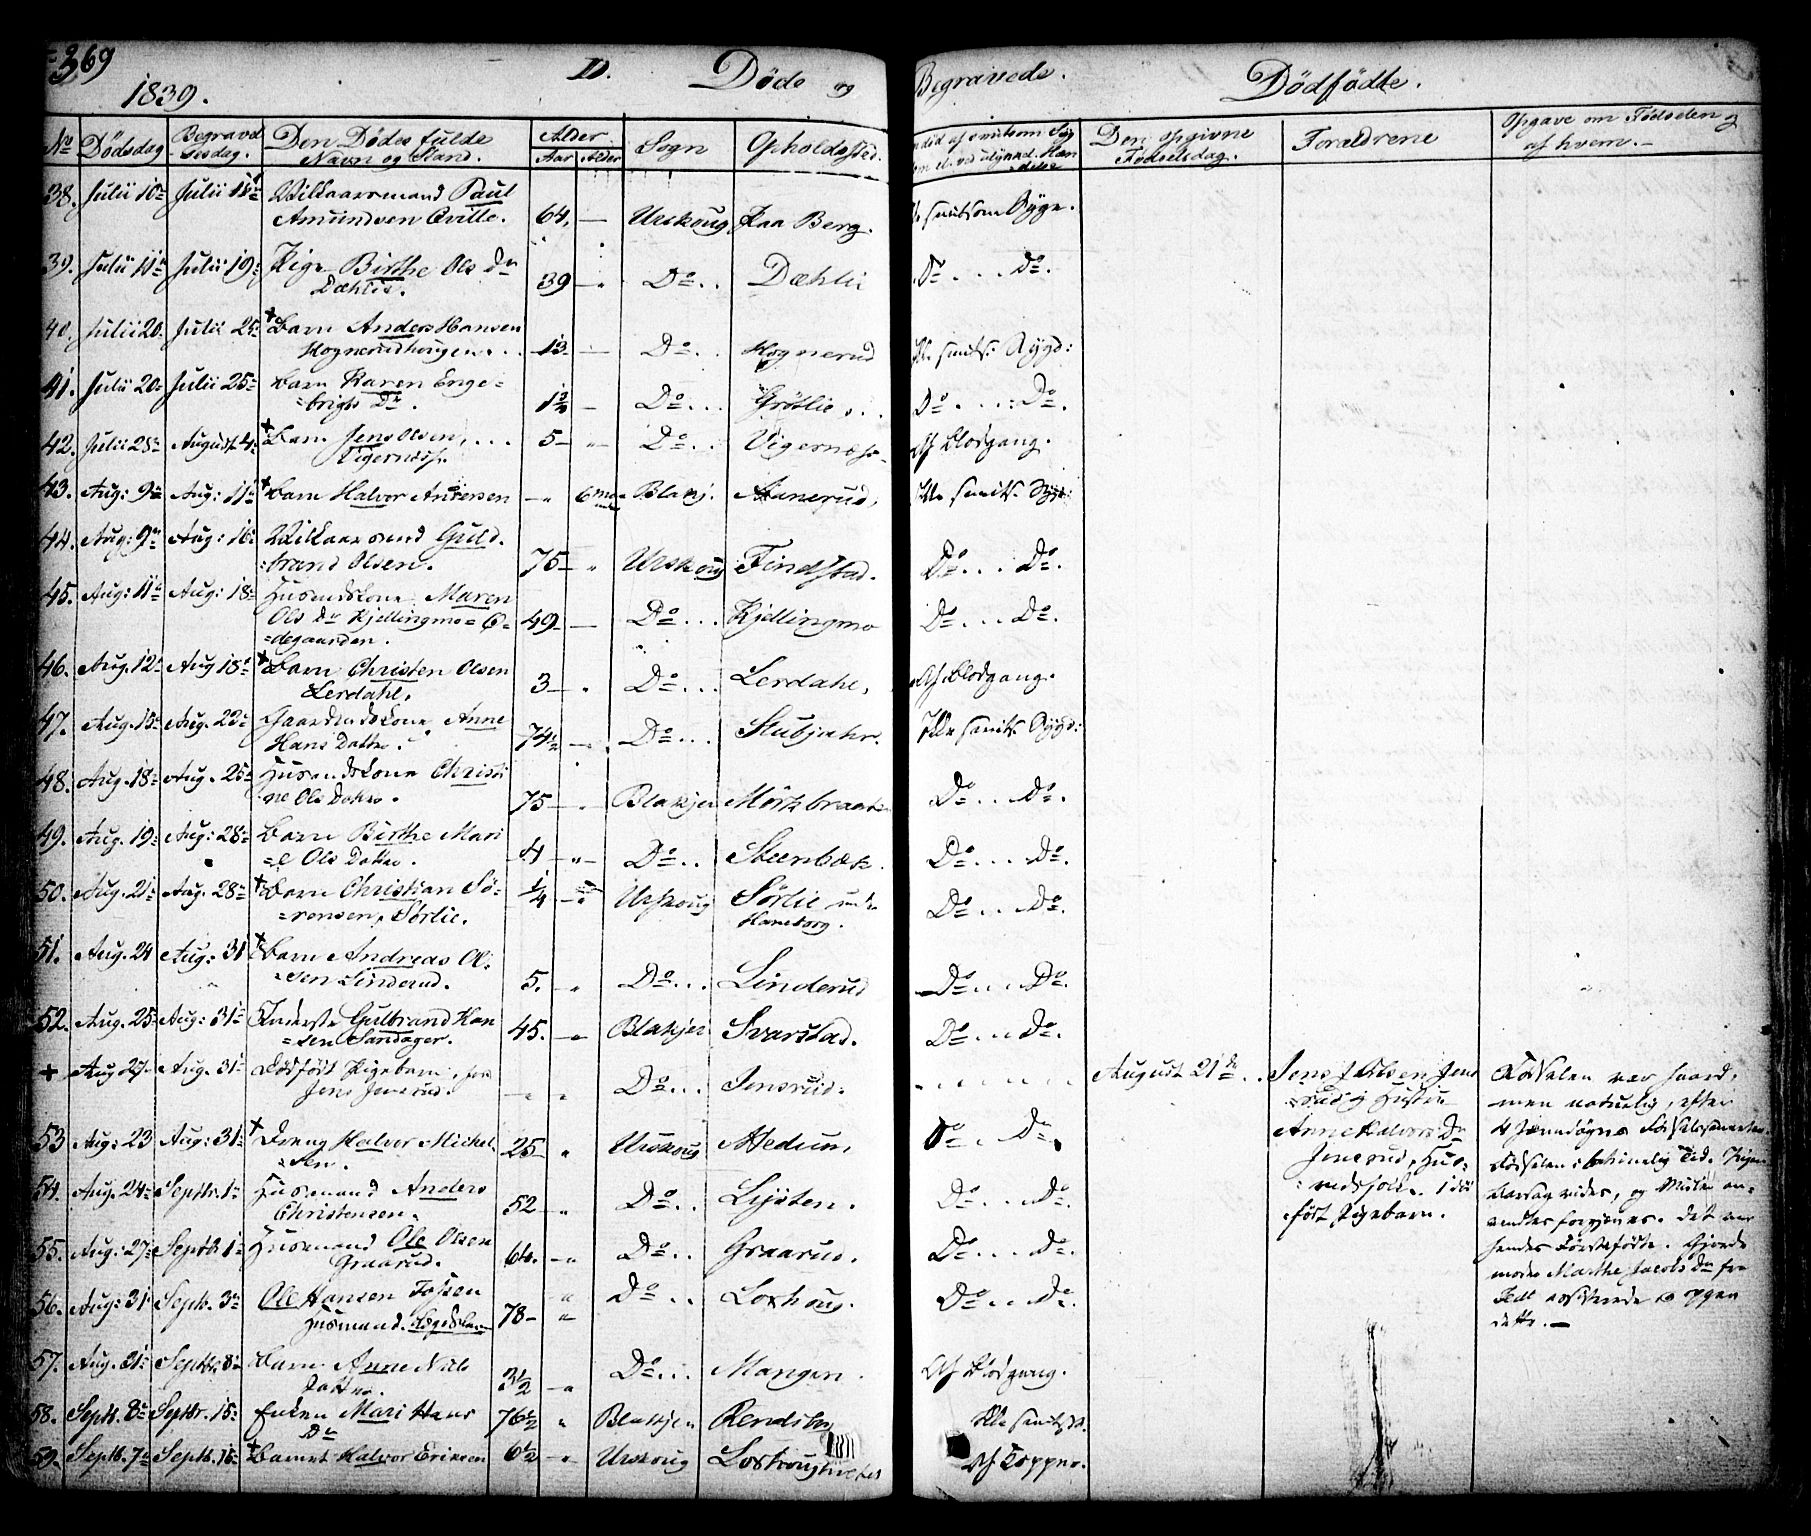 369
1839.
D. Døde og Begravede. Dødfødte.
No Dødsdag Begravelsesdag. Den Dødes fulde Navn og Stand. Alder Aar Sogn Opholdsted. Den opgivne Fødselsdag. Forældrene Opgave om Fødselen og af hvem.
38. Julii 10 Julii 18 Vilkaarsmand Paul
Amundsen Qville. 64. Urskoug Paa Berg. smitsom Syge.
39. Julii 11 Julii 19 Pige Birthe Ols Dr
Dæhlie. 39 Do Dæhlie Do Do.
40. Julii 20 Julii 25 Barn Anders Hansen
Hognerudhougen 13 Do Hognerud Ikke smits. Sygd:
41. Julii 20 Julii 25 Barn Karen Enge-
brigts Dr. 1½ Do Grøtlie Do Do.
42. Julii 28 August 4 Barn Jens Olsen,
Vigernæss. 5 Do Vigernæss Af Blodgang.
43. Aug: 9 Aug: 11 Barn Halvor Andersen 6 Blakj. Aanerud, Ikke smits. Syg:
44. Aug: 9 Aug: 16 Vilkaarsmand Guld-
brand Olsen. 75 Urskoug Findstad. Do Do.
45. Aug: 11 Aug: 18 Husmdskone Maren
Ols Dr Kjellingmo-Ø-
degaarden. 49 Do Kjellingmo Do Do.
46. Aug. 12 Aug 18 Barn Christen Olsen
Lerdahl. 3 Do Lerdahl. Af Blodgang.
47. Aug. 15 Aug. 22 Gaardmdskone Anne
Hans Datter. 74½ Do Stubjahr. Ikke smits. Sygd:
48. Aug. 18 Aug. 25 Husmdskone Christi-
ne Ols Datter. 75 Blakjer Mørkbraate Do Do.
49. Aug. 19 Aug: 28 Barn Birthe Mari-
e Ols Datter. 4 Do Steenbæk. Do Do.
50. Aug. 21 Aug. 28 Barn Christian Sø-
rensen, Sørlie. ¼ Urskoug Sørlie under
Haneborg. Do Do.
51. Aug. 24 Aug: 31 Barn Andreas Ol-
sen Linderud. 5. Do Linderud Do Do.
52. Aug. 25 Aug: 31 Inderste Gulbrand Han-
sen Sandager. 45. Blakjer Svarstad. Do Do.
+ Aug 27 Aug. 31 Dødfødt Pigebarn, for
Jens Jensrud. Do Jensrud. August 21de Jens Olsen Jens-
rud og Hustru
Anne Halvors Dr
Jensrud, Hus-
mdsfolk. 1 død-
født Pigebarn.
Fødselen var haard,
men naturlig, efter
4 Jevndøgns Fødselssmerter.
Fødselen i betimelig Tid.
og Midler an-
vendtes forgjeves. Det var
hendes Førstefødte. Gjorde-
moder Marthe Jacobs Dr fra
Tedt assisterede og opgav
dette.
53 Aug: 23 Aug: 31 Dreng Halvor Mickel-
sen. 25 Urskoug Hedum, Do Do.
54. Aug. 24 Septbr. 1 Husmand Anders
Christensen. 52 Do Lysten. Do Do.
55. Aug: 27 Septb 1 Husmand Ole Olsen
Graarud. 64. Do Graarud. Do Do.
56. Aug: 31 Septb. 3 Ole Hansen Fossen
Husmand. 78 Do Loxhoug. Do Do.
57. Aug. 31 Septbr 8 Barn Anne Nils
Datter. 3½ Do Mangen. Af Blodgang.
58. Septb. 8 Septbr. 15 Enken Mari Hans
Dr 76½ Blakjer Ikke smits.
59. Septb. 7 Septb. 16 Barnet Halvor Eriksen 6½ Urskoug Af Kopper.